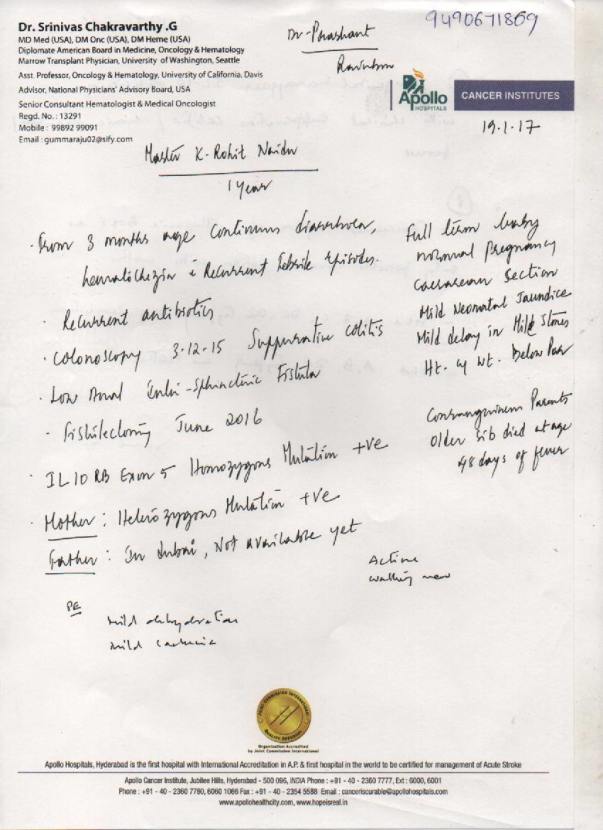 Dr. Srinivas Chakravarthy .G
MD Med (USA), DM Onc (USA), DM Heme (USA)
Diplomate American Board in Medicine, Oncology & Hematology
Marrow Transplant Physician, University of Washington, Seattle
Asst. Professor, Oncology & Hematology, University of California, Davis
Advisor, National Physicians' Advisory Board, USA
Senior Consultant Hematologist & Medical Oncologist
Regd. No. : 13291
Mobile : 99892 99091
Email : gummaraju02@sify.com
Dr. Prashant
Rainbow
9490671869
Apollo
HOSPITALS
CANCER INSTITUTES
19.1.17
Master K. Rohit Naidu
1 Year
. From 3 months age Continuous diarrhoea,
hematichezia c Recurrent Febrile Episodes.
. Recurrent antibiotics
. Colonoscopy 3-12-15 Suppurative colitis
. Low Anal Inter-Sphincteric Fistula
. Fistulectomy June 2016
. IL10RB Exon 5 Homozygous Mutation +ve
. Mother : Heterozygous Mutation +ve
Father : In Dubai, Not available yet
Full term baby
normal pregnancy
Caesarean Section
Mild Neonatal Jaundice
Mild delay in Mile Stones
Ht. & Wt. Below Par
Consanguineous Parents
Older Sib died at age
48 days of fever
Active
walking now
PE
mild dehydration
mild
Organization Accredited
by Joint Commission International
Apollo Hospitals, Hyderabad is the first hospital with International Accreditation in A.P. & first hospital in the world to be certified for management of Acute Stroke
Apollo Cancer Institute, Jubilee Hills, Hyderabad - 500 096, INDIA Phone : +91 - 40 - 2360 7777, Ext : 6000, 6001
Phone : +91 - 40 - 2360 7780, 6060 1066 Fax : +91 - 40 - 2354 5588 Email : canceriscurable@apollohospitals.com
www.apollohealthcity.com, www.hopeisreal.in